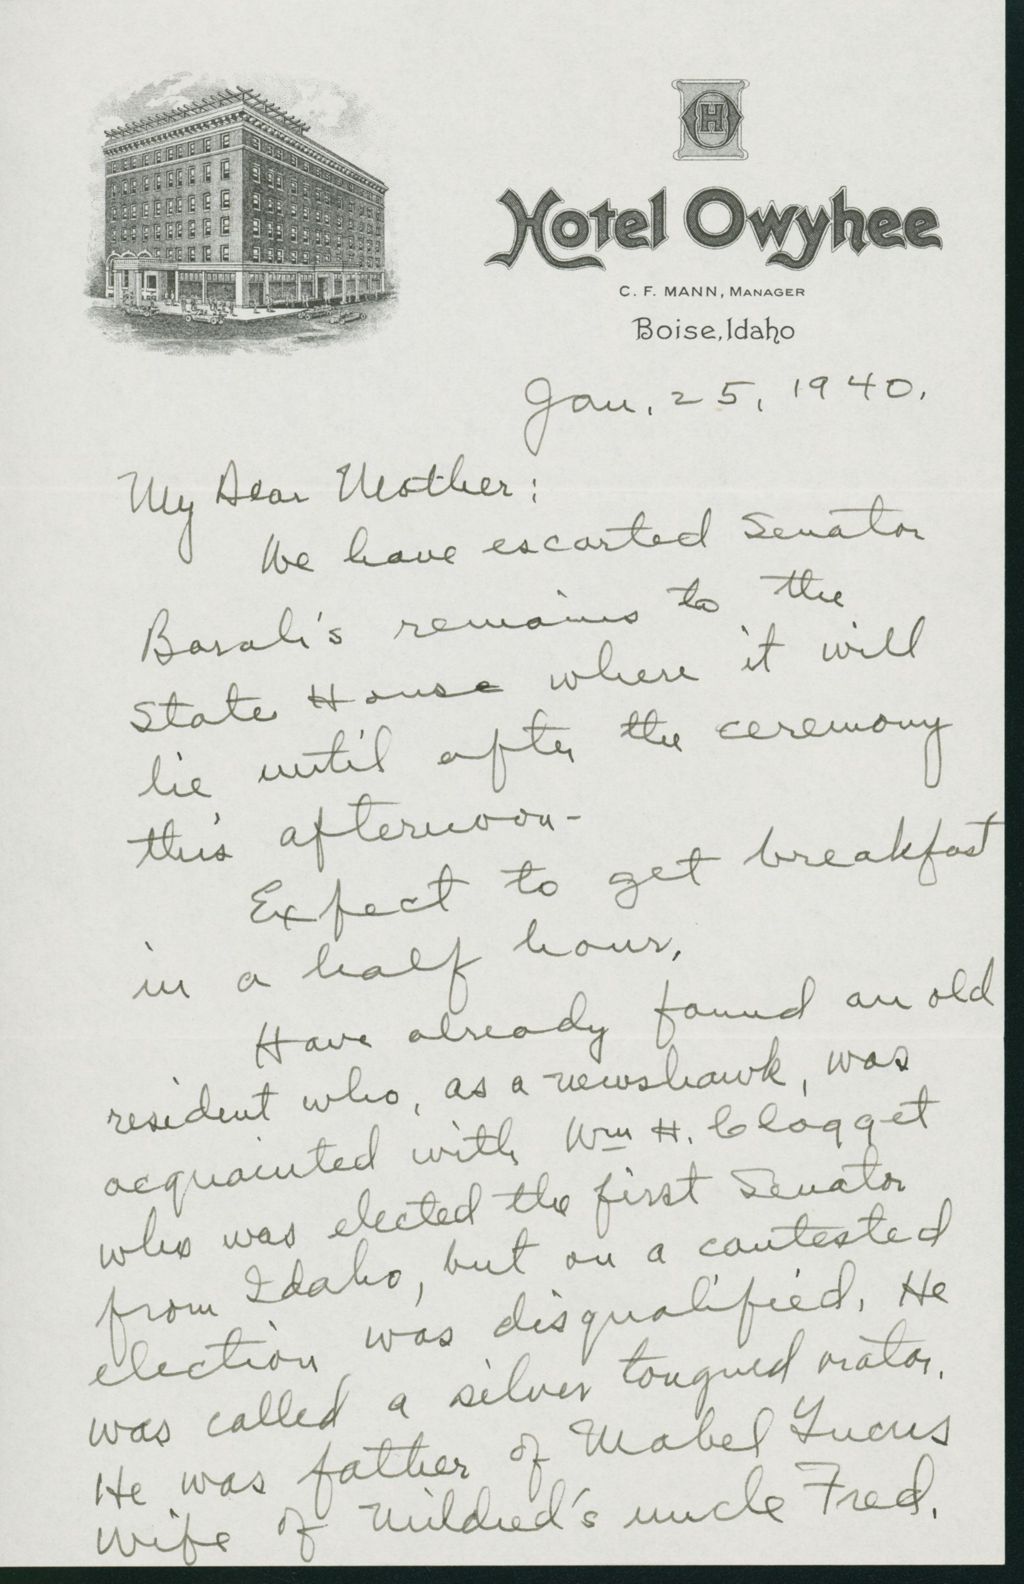 H O
Hotel Owyhee
C. F. MANN, MANAGER
Boise, Idaho
Jan. 25, 1940.
My Dear Mother:
We have escorted Senator
Borah's remains to the
State House where it will
lie until after the ceremony
this afternoon-
Expect to get breakfast
in a half hour.
Have already found an old
resident who, as a newshawk, was
acquainted with Wm H. Clagget
who was elected the first Senator
from Idaho, but on a contested
election was disqualified. He
was called a silver tongued orator.
He was father of Mabel Lucus
wife of Mildred's uncle Fred.